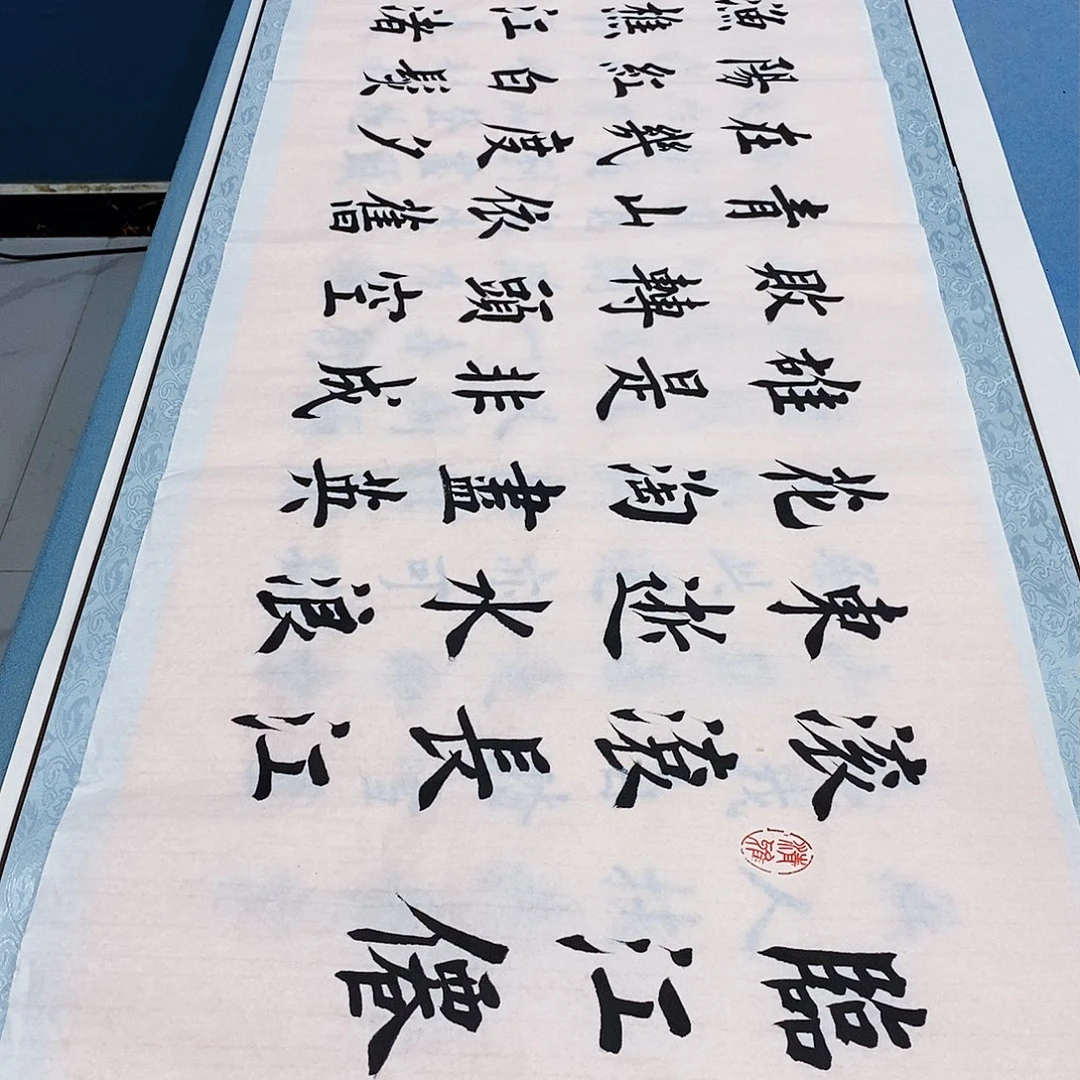 臨江僊
清雅
滾滾長江
東逝水浪
花淘盡英
雄是非成
敗轉頭空
青山依舊
在幾度夕
陽紅白髮
漁樵江渚